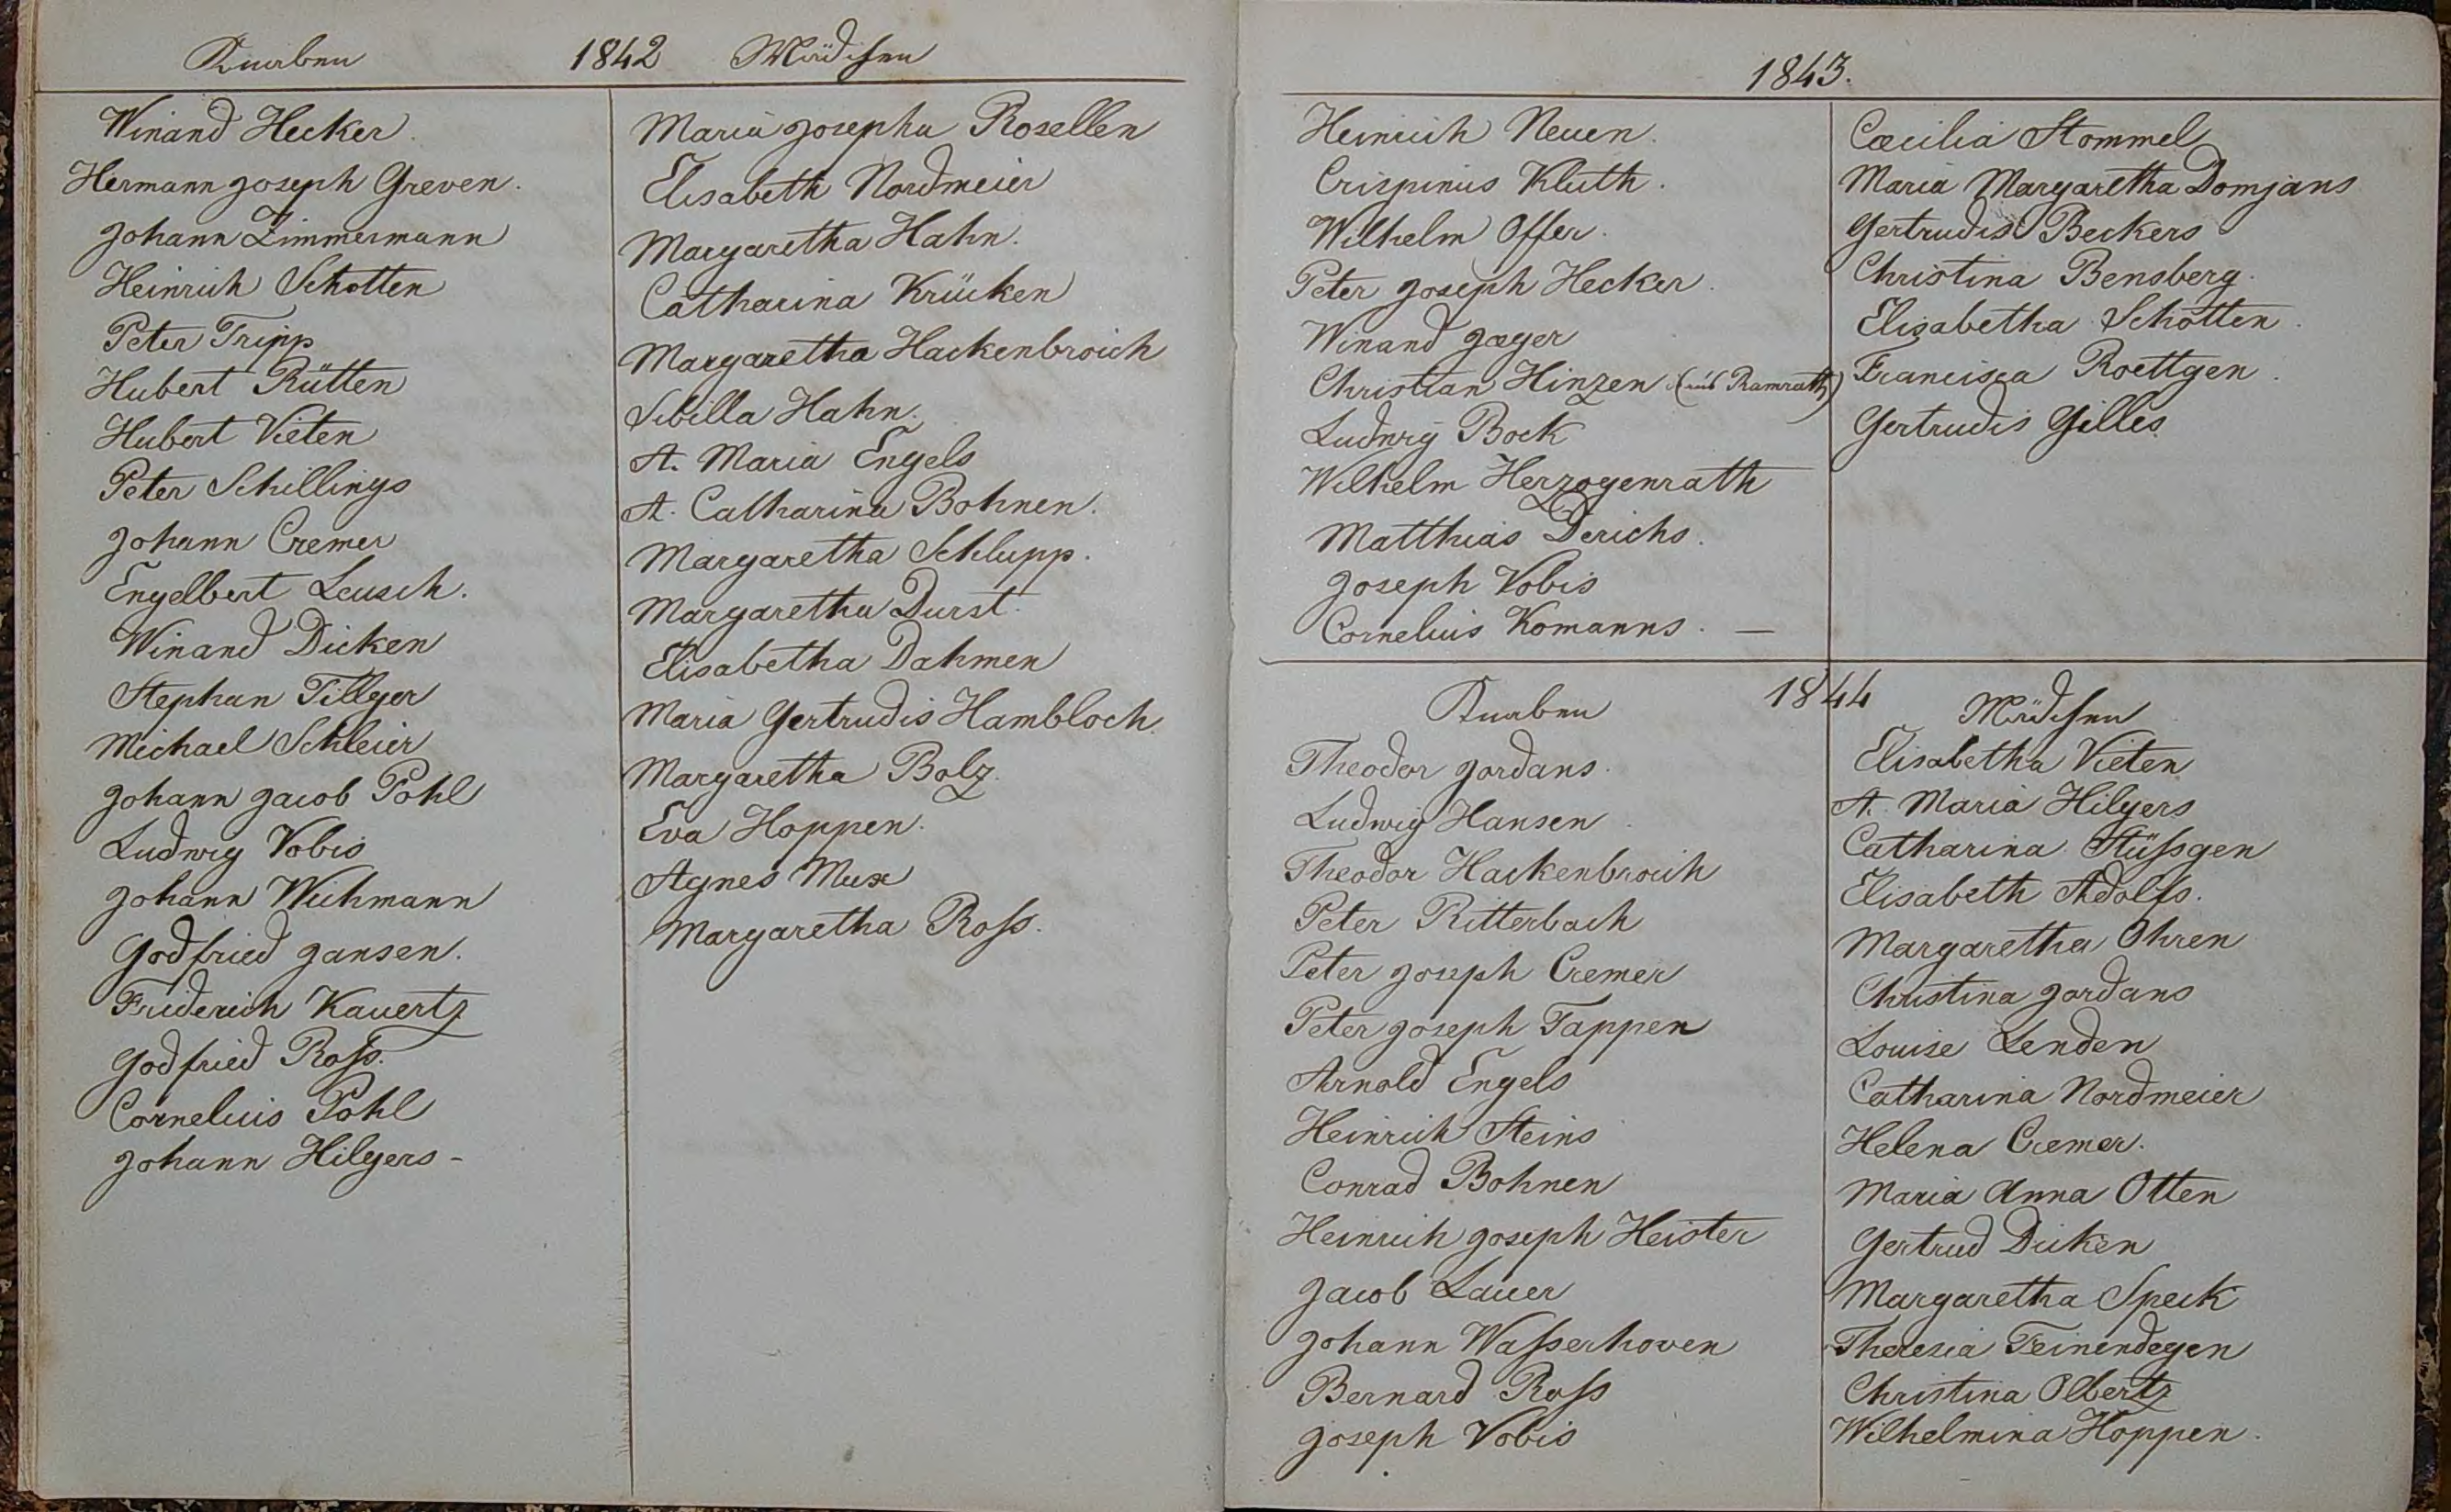 Knaben 1842 Mädchen
Winand Hecker.
Hermann Joseph Greven.
Johann Zimmermann
Heinrich Schotten
Peter Tripp
Hubert Rütten
Hubert Vieten
Peter Schillings
Johann Cremer
Engelbert Leusch.
Winand Dicken
Stephan Tillger
Michael Schleier
Johann Jacob Pohl
Ludwig Vobis
Johann Weihmann
Godfried Jansen.
Friderich Kauertz
Godfried Roſs.
Cornelius Pohl
Johann Hilgers -
Maria Josepha Rosellen
Elisabeth Nordmeier
Margaretha Hahn.
Catharina Krücken
Margaretha Hackenbroich
Sibilla Hahn.
A. Maria Engels
A. Catharina Bohnen.
Margaretha Schlupp.
Margaretha Durst.
Elisabetha Dahmen
Maria Gertrudis Hambloch.
Margaretha Bolz.
Eva Hoppen.
Agnes Mux
Margaretha Roſs.
1843.
Heinrich Neuen.
Crispinus Kluth.
Wilhelm Offer.
Peter Joseph Hecker.
Winand Jæger
Christian Hinzen (aus Ramrath)
Ludwig Bock
Wilhelm Herzogenrath
Matthias Derichs.
Joseph Vobis
Cornelius Komanns. —
Cæcilia Stommel
Maria Margaretha Domjans
Gertrudis Beckers
Christina Bensberg.
Elisabetha Schotten.
Francisca Roettgen.
Gertrudis Gilles.
Knaben 1844 Mädchen
Theodor Jordans.
Ludwig Hansen.
Theodor Hackenbroich
Peter Ritterbach
Peter Joseph Cremer
Peter Joseph Tappen
Arnold Engels
Heinrich Steins
Conrad Bohnen
Heinrich Joseph Heister
Jacob Lauer
Johann Waſserhoven
Bernard Roſs
Joseph Vobis
Elisabetha Vieten
A. Maria Hilgers
Catharina Stüſsgen
Elisabeth Adolfs.
Margaretha Ohren
Christina Jordans
Louise Lenden
Catharina Nordmeier
Helena Cremer.
Maria Anna Otten
Gertrud Dicken
Margaretha Speck
Theresia Feinendegen
Christina Olbertz
Wilhelmina Hoppen.